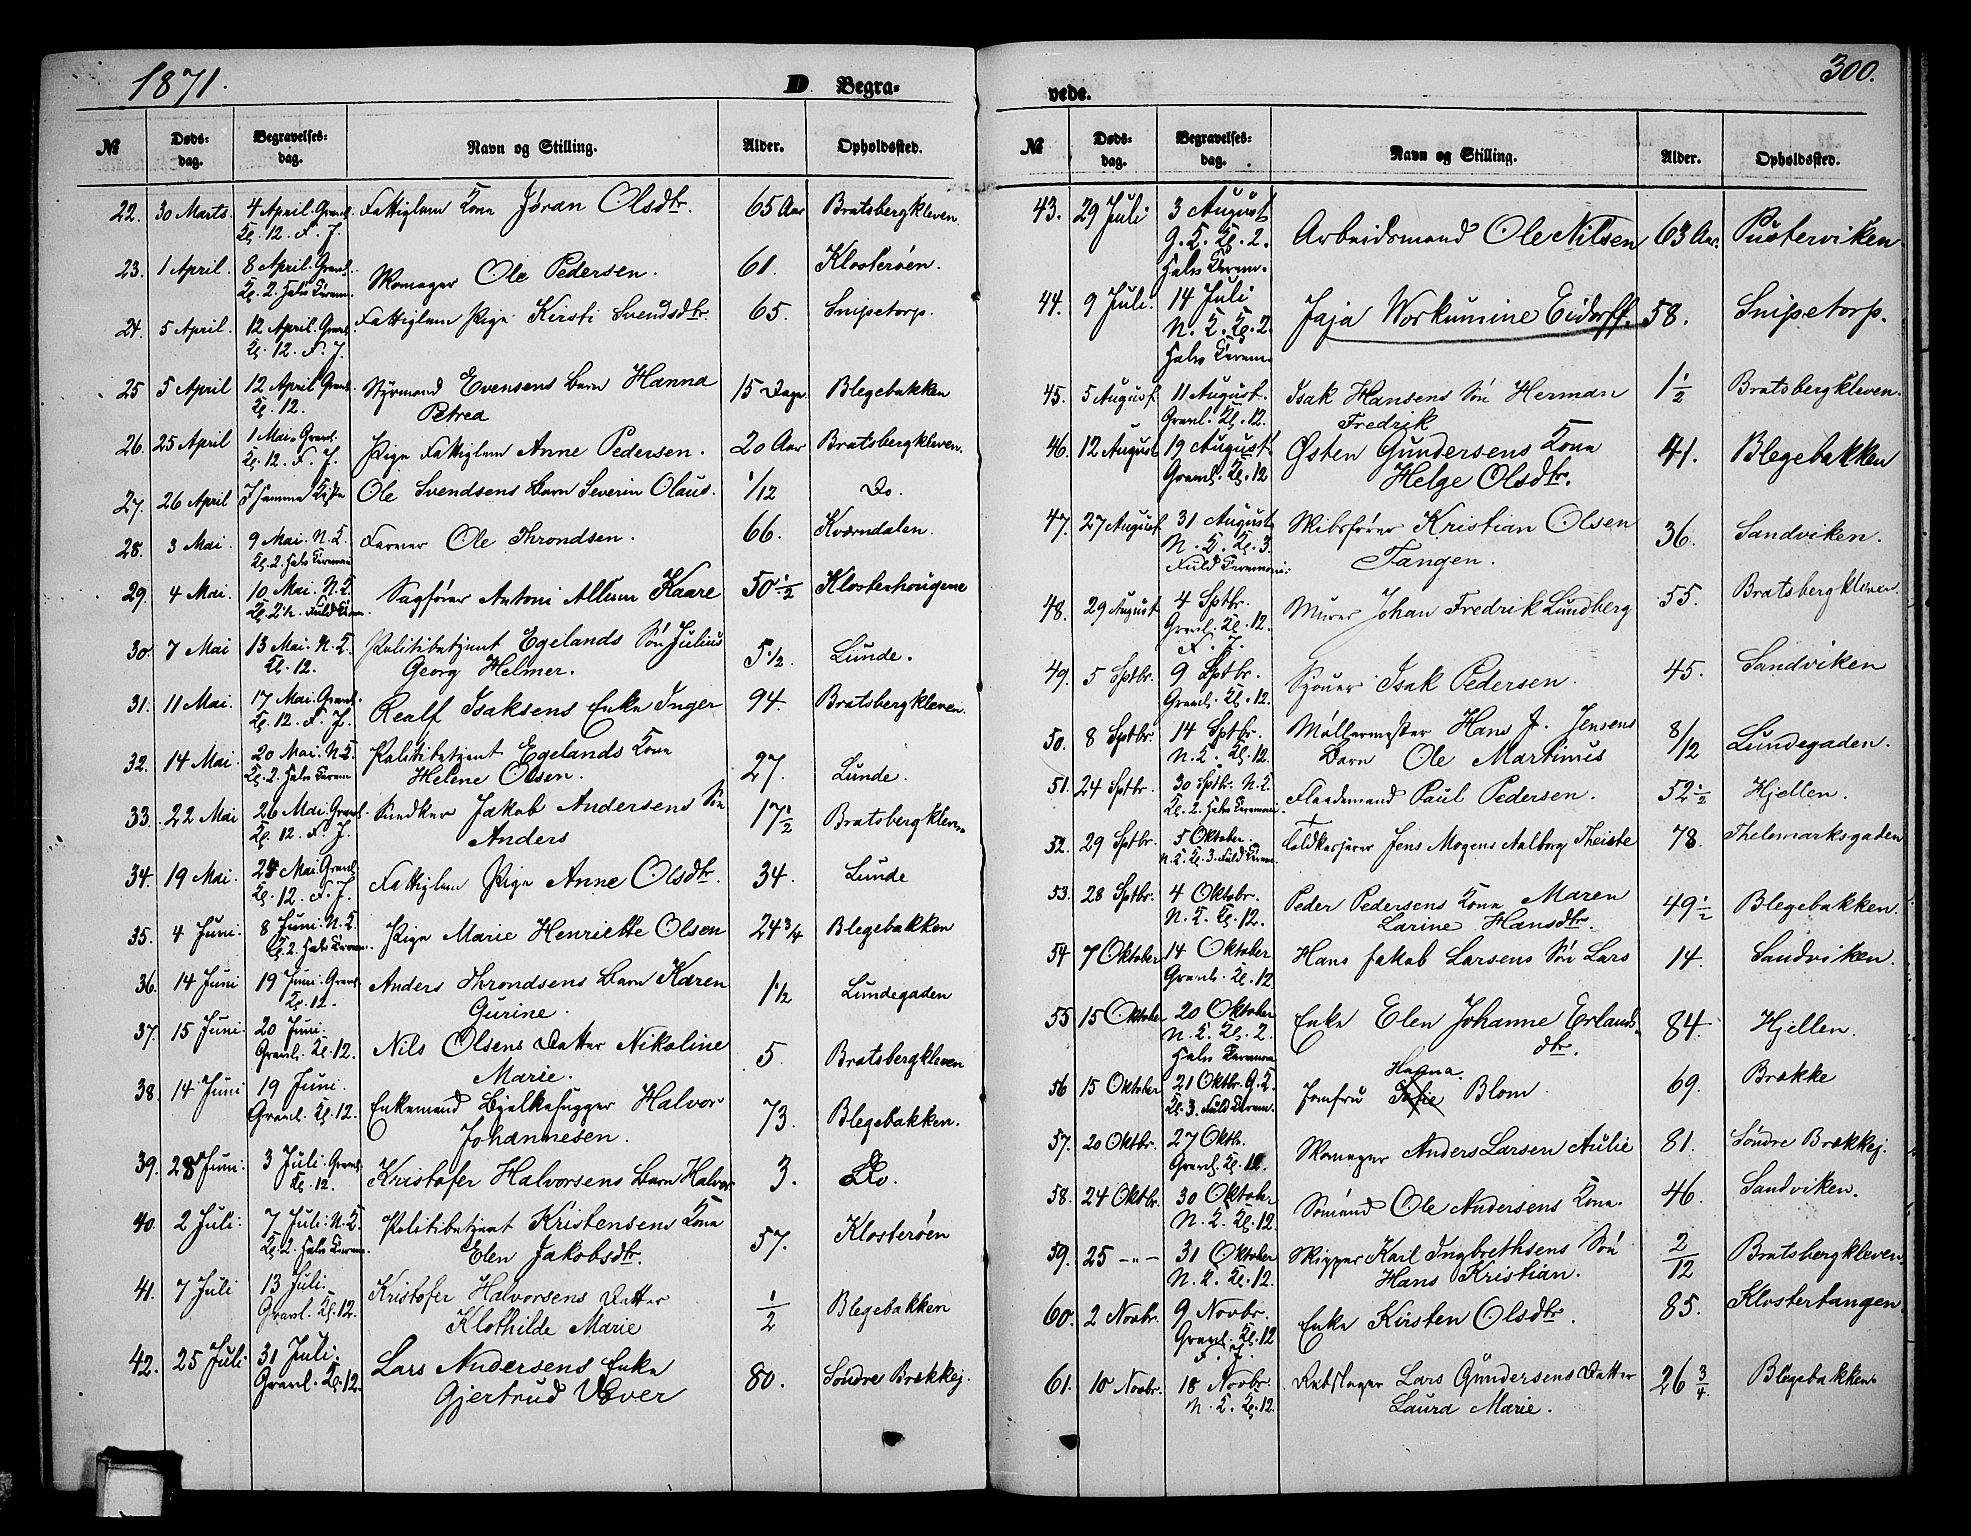 1871.
D. Begra-
№ Døds-dag. Begravelses-dag. Navn og Stilling. Alder. Opholdssted.
22. 30 Marts. 4 April. Gravl. Kl. 12. F. J. Fattiglem Kone Jøran Olsdtr. 65 Aar Bratsbergkleven
23. 1 April. 8 April. Gravl. Kl. 2. Halv Cerem. Skomager Ole Pedersen. 61. Klosterøen.
24. 5 April. 12 April. Gravl. Kl. 12. F. J. Fattiglem Pige Kirsti Svendsdtr. 65. Snipetorp.
25 5 April 12 April Gravl. Kl. 12. Styrmand Evensens Barn Hanna
Petrea 15 Dage. Blegebakken
26. 25 April 1 Mai. Gravl. Kl. 12. F. J. Pige Fattiglem Anne Pedersen. 20 Aar Bratsbergkleven.
27. 26 April I samme Kiste Ole Svendsens Barn Severin Olaus. 1/12 Do.
28. 3 Mai. 9 Mai. N. K. Kl. 2. Halv Cerem Farver Ole Throndsen. 66. Kværndalen.
29. 4 Mai. 10 Mai. N. K. Kl. 2½. Fuld Cerem. Sagfører Antoni Allum Kaare 50 1/2 Klosterhougene
30. 7 Mai 13 Mai. N. K. Kl. 12. Politibetjent Egelands Søn Julius
Georg Helmer. 5 1/2. Lunde.
31. 11 Mai. 17 Mai. Gravl. Kl. 12. F. J. Realf Isaksens Enke Inger 94. Bratsbergkleven.
32. 14 Mai. 20 Mai. N. K. Kl. 2. Halv Cerem Politibetjent Egelands Kone
Helene Olsen. 27. Lunde.
33. 22 Mai 26 Mai Gravl. Kl. 12. F. J. Snedker Jakob Andersens Søn
Anders 17 1/2 Bratsbergkleven
34. 19 Mai. 24 Mai Gravl. Kl. 12. F. J. Fattiglem Pige Anne Olsdtr. 34. Lunde
35. 4 Juni. 8 Juni. N. K. Kl. 2. Halv Cerem. Pige Marie Henriette Olsen 24 3/4 Blegebakken
36. 14 Juni 19 Juni. Gravl. Kl. 12. Anders Throndsens Barn Karen
Gurine. 1 1/2 Lundegaden
37. 15 Juni. 20 Juni. Gravl. Kl. 12. Nils Olsens Datter Nikoline
Marie. 5. Bratsbergkleven
38. 14 Juni 19 Juni. Gravl. Kl. 12. Enkemand Bjelkehugger Halvor
Johannesen. 73. Blegebakken.
39. 28 Juni. 3 Juli. Gravl. Kl. 12. Kristofer Halvorsens Barn Halvor 3. Do.
40. 2 Juli. 7 Juli. N. K. Kl. 2. Halv Cerem. Politibetjent Kristensens Kone
Elen Jakobsdtr. 57. Klosterøen
41. 7 Juli 13 Juli. Gravl. Kl. 12. Kristofer Halvorsens Datter
Klothilde Marie 1/2 Blegebakken
42. 25 Juli 31 Juli. Gravl. Kl. 12. Lars Andersens Enke
Gjertrud Væver 80. Søndre Brækkej.
300.
vede.
№ Døds-dag. Begravelses-dag. Navn og Stilling. Alder. Opholdssted.
43. 29 Juli 3 August G. K. Kl. 2. Halv Cerem. Arbeidsmand Ole Nilsen 63 Aar. Pusterviken
44. 9 Juli. 14 Juli N. K. Kl. 2. Halv Cerem Jaja Workumine Eidorff. 58. Snipetorp.
45. 5 August 11 August. Gravl. Kl. 12. Isak Hansens Søn Herman
Fredrik 1 1/2 Bratsbergkleven.
46. 12 August 19 August Gravl. Kl. 12 Østen Gundersens Kone
Helge Olsdtr. 41. Blegebakken
47. 27 August 31 August N. K. Kl. 3. Fuld Ceremoni. Skibsfører Kristian Olsen
Tangen. 36. Sandviken.
48. 29 August 4 Sptbr. Gravl. Kl. 12. F. J. Murer Johan Fredrik Lundberg 55. Bratsbergkleven
49. 5 Sptbr. 9 Sptbr. Gravl. Kl. 12. Sjouer Isak Pedersen. 45. Sandviken
50. 8 Sptbr. 14 Sptbr. N. K. Kl. 12. Møllermester Hans J. Jensens
Barn Ole Martinius 8/12 Lundegaden.
51. 24 Sptbr. 30 Sptbr. N. K. Kl. 2. Halv Ceremoni. Flaademand Paul Pedersen. 52 1/2 Hjellen.
52. 29 Sptbr. 5 Oktober. N. K. Kl. 3. Fuld Cerem. Toldkasserer Jens Mogens Aalborg Theiste 78. Thelemarksgaden
53. 28 Sptbr. 4 Oktobr. N. K. Kl. 12. Peder Pedersens Kone Maren
Larine Hansdtr. 49 1/2 Blegebakken.
54 7 Oktober 14 Oktober Gravl. Kl. 12 Hans Jakob Larsens Søn Lars 14. Sandviken.
55 15 Oktober 20 Oktober N. K. Kl. 2. Halv Cerem Enke Elen Johanne Erlands-
dtr. 84. Hjellen.
56 15 Oktober 21 Oktbr. G. K. Kl. 3. Fuld Cerem. Jomfru Sofie Hagna. Blom 69. Brække
57. 20 Oktbr. 27 Oktb. Gravl. Kl. 12. Skomager Anders Larsen Aulie 81. Søndre Brækkej.
58. 24 Oktbr. 30 Oktober N. K. Kl. 12. Sømand Ole Andersens Kone. 46. Sandviken.
59. 25 -"- 31 Oktober N. K. Kl. 12. Skipper Karl Ingbrethsens Søn
Hans Kristian. 2/12 Bratsbergkleven
60. 2 Novbr. 9 Novbr. Gravl. Kl. 12 F. J. Enke Kirsten Olsdtr. 85. Klostertangen
61. 10 Novbr. 18 Novbr. N. K. Kl. 12. Rebslager Lars Gundersens Datter
Laura Marie. 26 3/4. Blegebakken